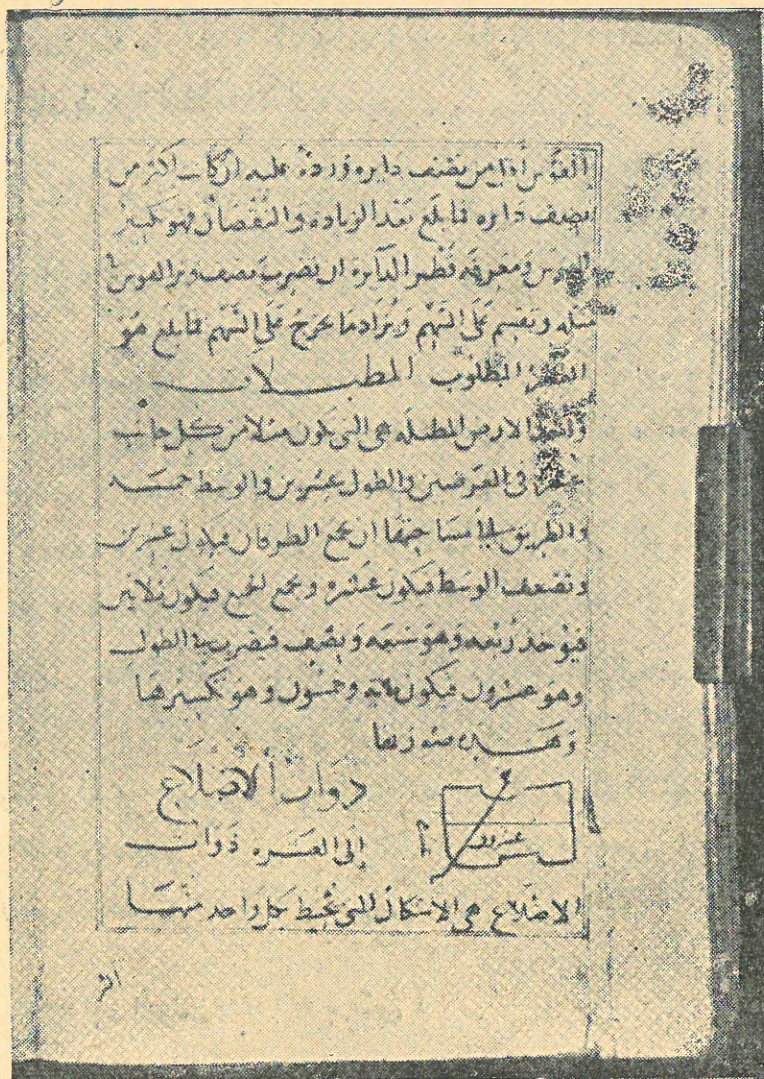 القوس أقل من نصف دايره وزده عليه ان كانت اكثر من
نصف دايره فما بلغ بعد الزياده والنقصان فهو تكسير
القوس ومعرفة قطر الدايرة ان تضرب نصف وتر القوس في
مثله وتقسم على السهم ويزاد ما يخرج على السهم فما بلغ هو
القطر المطلوب المطبلات
الارض المطبله هي التي يكون مثلا من كل جانب
عشره في العرضين والطول عشرين والوسط خمسه
والطريق في مساحتها ان يجمع الطرفان فيكون عشرين
وتضعف الوسط فيكون عشره ويجمع الجميع فيكون ثلاثين
فيوخذ ربعه وهو سبعه ونصف فيضرب في الطول
وهو عشرون فيكون مائه وخمسون وهو تكسيرها
وهذه صورتها
ذوات الاضلاع
عشرون
الى العشره ذوات
الاضلاع هي الاشكال التي يحيط بكل واحد منها